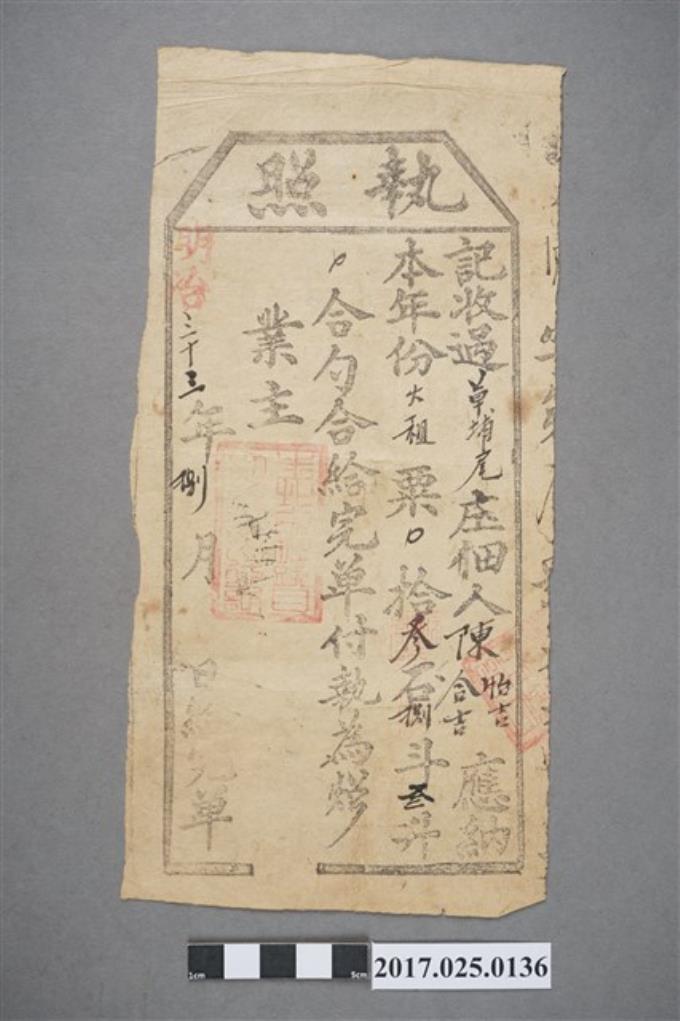 執照
記收過草埔尾庄佃人陳怡吉合吉應納
本年份大租粟拾叁石捌斗叁升
合勺合給完單付執為炤
業主
明治三十三年捌月日給完單
1cm
5cm
2017.025.0136